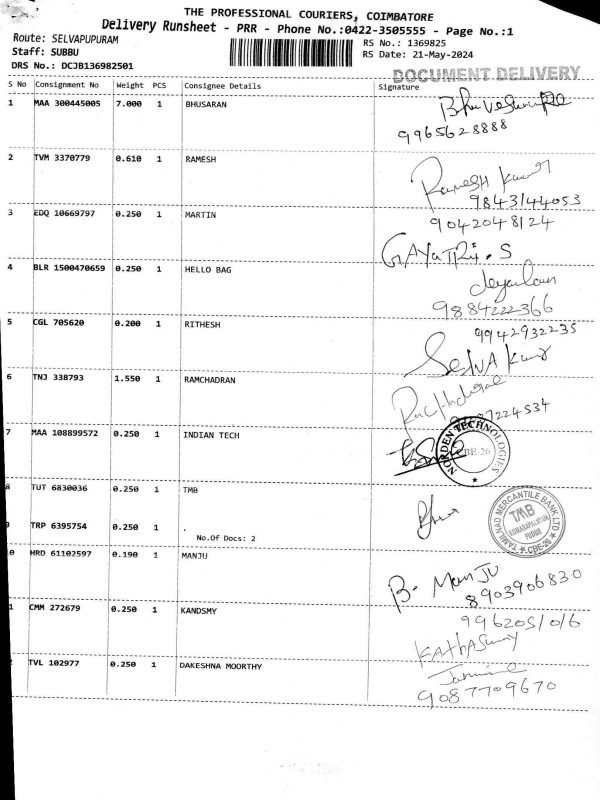 THE PROFESSIONAL COURIERS, COIMBATORE
Delivery Runsheet - PRR - Phone No.:0422-3505555 - Page No.:1
Route: SELVAPUPURAM
RS No.: 1369825
Staff: SUBBU
RS Date: 21-May-2024
DRS No.: DCJB136982501
DOCUMENT DELIVERY
S No Consignment No Weight PCS Consignee Details Signature
1 MAA 300445005 7.000 1 BHUSARAN
9965628888
2 TVM 3370779 0.610 1 RAMESH
RamesH Kumar
9843144053
3 EDQ 10669797 0.250 1 MARTIN
9042048124
GAYaTRi.S
4 BLR 1500470659 0.250 1 HELLO BAG
9884222366
5 CGL 705620 0.200 1 RITHESH
9942932235
SelvA Kumar
6 TNJ 338793 1.550 1 RAMCHADRAN
7224534
7 MAA 108899572 0.250 1 INDIAN TECH
NORDEN TECHNOLOGIES
CBE-26
8 TUT 6830036 0.250 1 TMB
TAMILNAD MERCANTILE BANK LTD
TMB
KUMARAPALAYAM
PUDUR
CBE-26
9 TRP 6395754 0.250 1 .
No.Of Docs: 2
0 HRD 61102597 0.190 1 MANJU
B. ManJU
8903906830
1 CMM 272679 0.250 1 KANDSMY
9962051016
KAthASamy
2 TVL 102977 0.250 1 DAKESHNA MOORTHY
9087709670